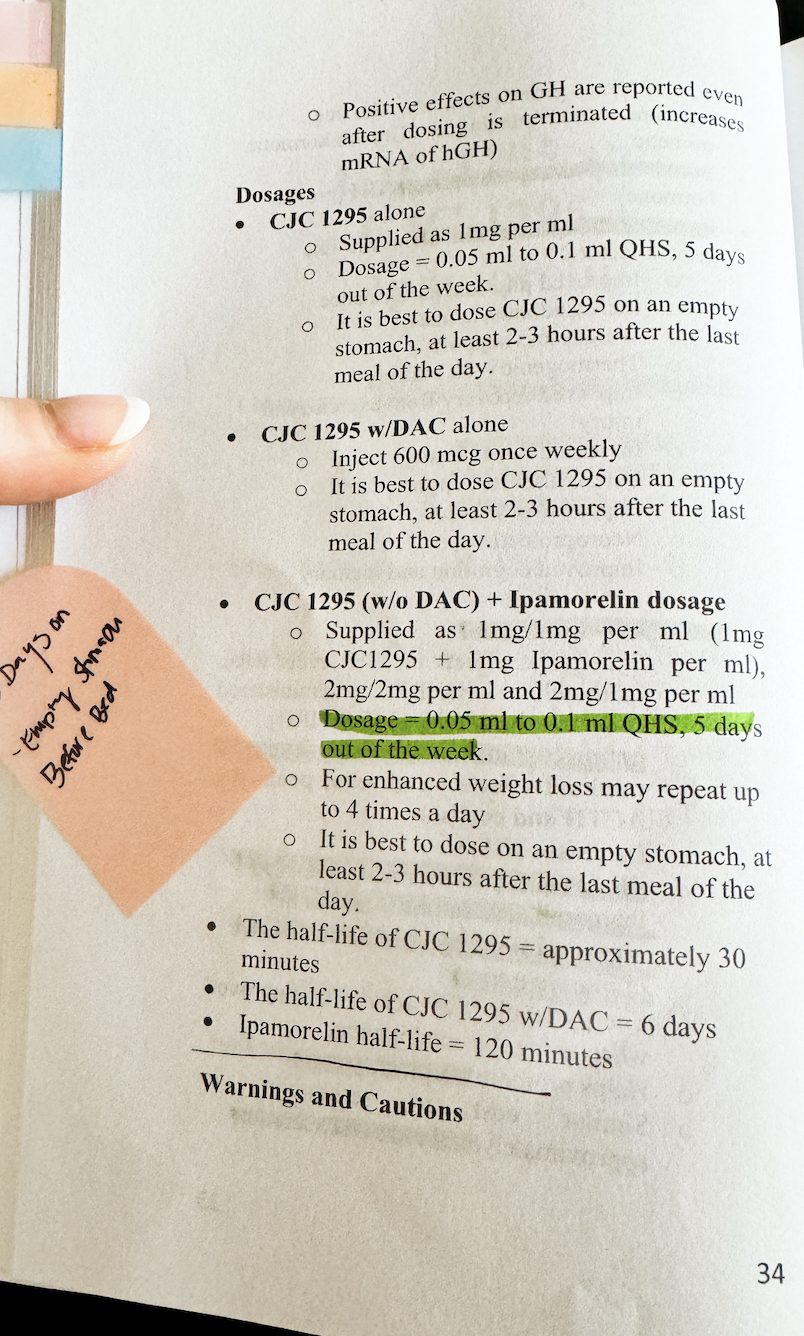 o Positive effects on GH are reported even
after dosing is terminated (increases
mRNA of hGH)
Dosages
• CJC 1295 alone
o Supplied as 1mg per ml
o Dosage = 0.05 ml to 0.1 ml QHS, 5 days
out of the week.
o It is best to dose CJC 1295 on an empty
stomach, at least 2-3 hours after the last
meal of the day.
• CJC 1295 w/DAC alone
o Inject 600 mcg once weekly
o It is best to dose CJC 1295 on an empty
stomach, at least 2-3 hours after the last
meal of the day.
• CJC 1295 (w/o DAC) + Ipamorelin dosage
o Supplied as 1mg/1mg per ml (1mg
CJC1295 + 1mg Ipamorelin per ml),
2mg/2mg per ml and 2mg/1mg per ml
o Dosage = 0.05 ml to 0.1 ml QHS, 5 days
out of the week.
o For enhanced weight loss may repeat up
to 4 times a day
o It is best to dose on an empty stomach, at
least 2-3 hours after the last meal of the
day.
• The half-life of CJC 1295 = approximately 30
minutes
• The half-life of CJC 1295 w/DAC = 6 days
• Ipamorelin half-life = 120 minutes
Warnings and Cautions
34
Days on
-Empty
Before Bed